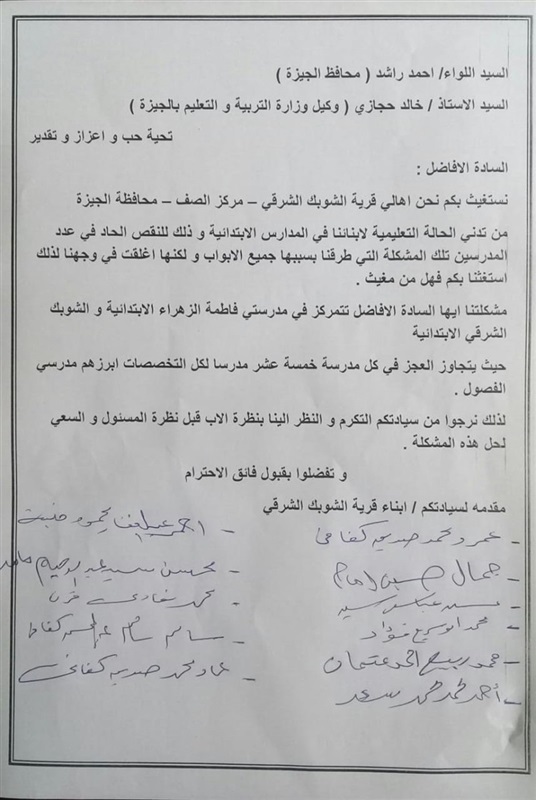 السيد اللواء/ احمد راشد ( محافظ الجيزة )
السيد الاستاذ / خالد حجازي ( وكيل وزارة التربية و التعليم بالجيزة )
تحية حب و اعزاز و تقدير
السادة الافاضل :
نستغيث بكم نحن اهالي قرية الشوبك الشرقي – مركز الصف – محافظة الجيزة
من تدني الحالة التعليمية لابنائنا في المدارس الابتدائية و ذلك للنقص الحاد في عدد
المدرسين تلك المشكلة التي طرقنا بسببها جميع الابواب و لكنها اغلقت في وجهنا لذلك
استغثنا بكم فهل من مغيث .
مشكلتنا ايها السادة الافاضل تتمركز في مدرستي فاطمة الزهراء الابتدائية و الشوبك
الشرقي الابتدائية
حيث يتجاوز العجز في كل مدرسة خمسة عشر مدرسا لكل التخصصات ابرزهم مدرسي
الفصول .
لذلك نرجوا من سيادتكم التكرم و النظر الينا بنظرة الاب قبل نظرة المسئول و السعي
لحل هذه المشكلة .
و تفضلوا بقبول فائق الاحترام
مقدمه لسيادتكم / ابناء قرية الشوبك الشرقي
- عمرو محمد صديق كفافي
- جمال حسين امام
- عباس سيد
- محمد ابو سريع فؤاد
- محمود ربيع احمد عثمان
- أحمد محمد محمد سعد
- احمد عبد اللطيف محمود
- محسن سيد عبد الرحيم حامد
- محمد
- سالم
- عماد محمد صديق كفافي